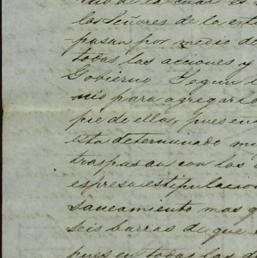 de la cual es
los Señores de la es
pasan por medio de
todas las acciones y
Gobierno Segun
nis para agregarlo
pie de ellas, pues en
esta determinado m
traspasan con las
espresa estipulacion
saneamiento mas q
seis barras de que
pues en todas las d